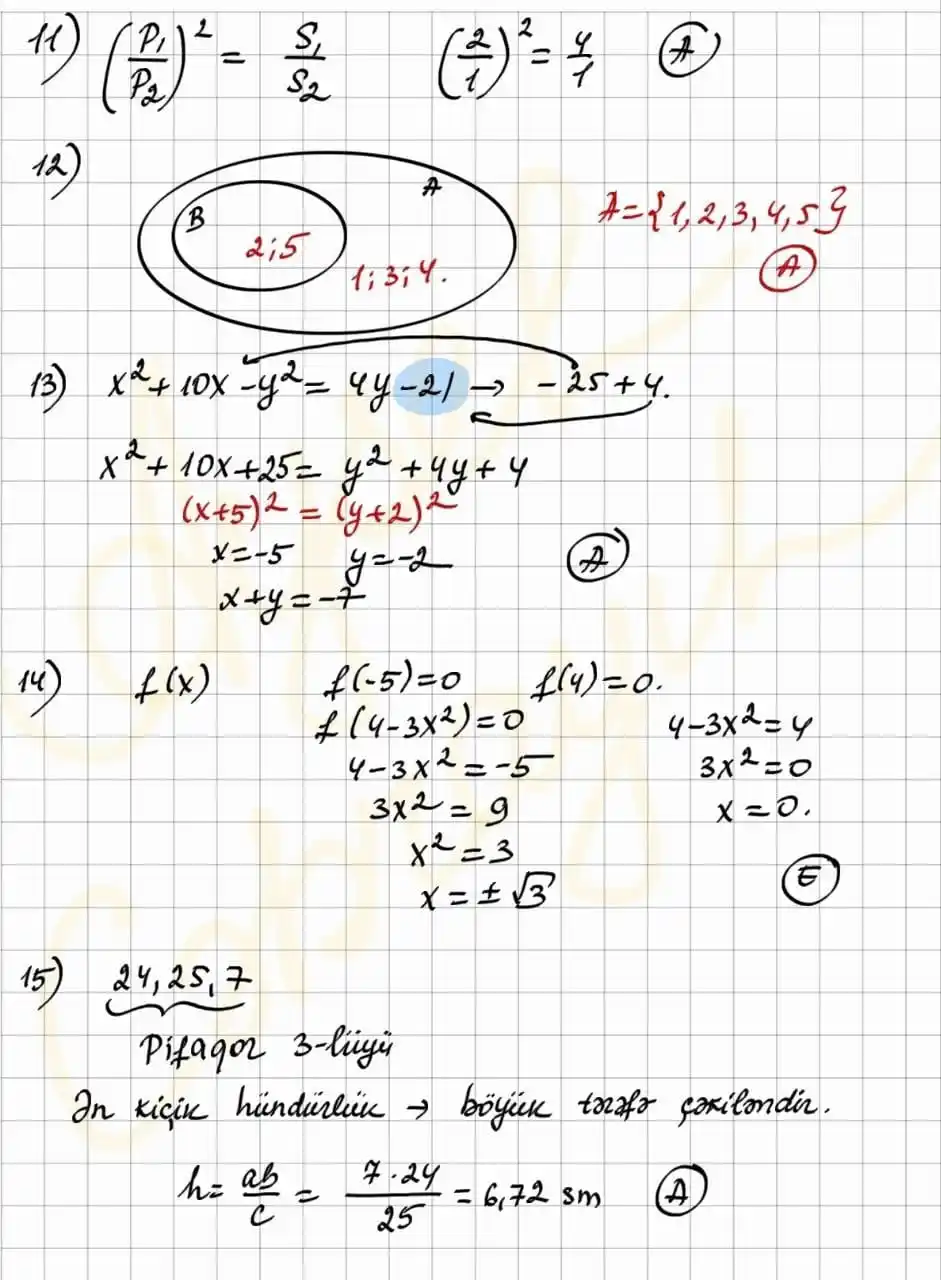 11) (P₁/P₂)² = S₁/S₂ (2/1)² = 4/1 A
12)
B A
2;5
1;3;4.
A={1,2,3,4,5}
A
13) x²+10x-y²= 4y-21 → -25+4.
x²+10x+25= y²+4y+4
(x+5)² = (y+2)²
x=-5 y=-2 A
x+y=-7
14) f(x) f(-5)=0 f(4)=0.
f(4-3x²)=0 4-3x²=4
4-3x²=-5 3x²=0
3x² = 9 x=0.
x²=3
x=±√3 E
15) 24,25,7
Pifaqor 3-lüyü
Ən kiçik hündürlük → böyük tərəfə çəkiləndir.
h= ab/c = 7·24/25 = 6,72 sm A